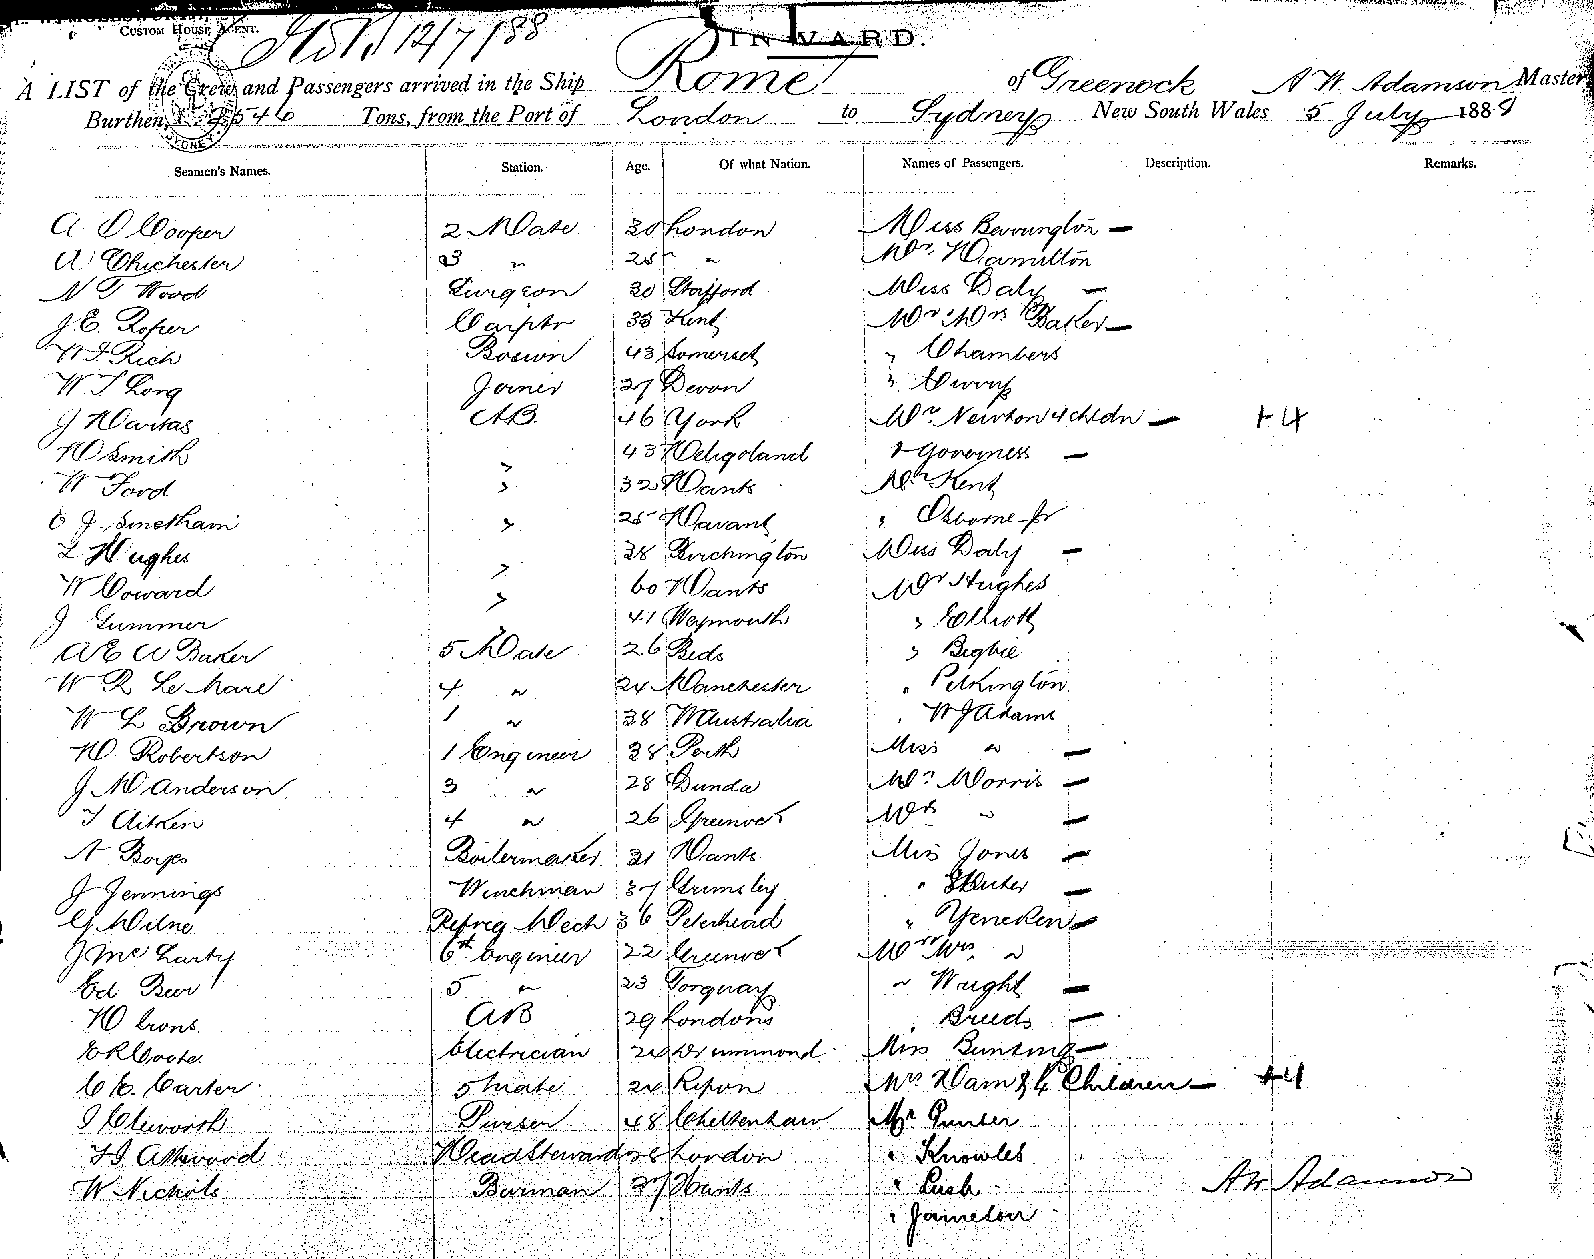 CUSTOM HOUSE AGENT.
12/7/88 INWARD.
A LIST of the Crew and Passengers arrived in the Ship Rome of Greenock A W Adamson Master
Burthen, 2546 Tons, from the Port of London to Sydney New South Wales 5 July 1888
Seamen's Names. Station. Age. Of what Nation. Names of Passengers. Description. Remarks.
A D Cooper 2 Mate 30 London Miss Bevvington —
A Chichester 3 " 25 " Mr. Hamilton
N T Wood Surgeon 30 Stafford Miss Daly —
J. E. Roper Carptr 33 Kent Mr & Mrs Baker —
W J Rich Boswn 43 Somerset " Chambers
W T Long Joiner 37 Devon "
J AB. 46 York Mrs. Newton 4 chldn — +4
H Smith " 43 Heligoland & Governess —
W Ford " 32 Hants Mr Kent
E J Smetham " 25 Havant " Osborne jr
L Hughes " 38 Birchington Miss Daly —
W Coward " 60 Hants Mr Hughes
J Gummer " 41 Weymouth " Elliott
A E A Baker 5 Mate 26 Beds " Bigbie
W R Le Mare 4 " 24 Manchester " Pelkington
W L Brown 1 " 38 W Australia " W J Adams
D. Robertson 1 Engineer 38 Perth Miss " —
J M Anderson 3 " 28 Dunda Mr. Morris —
T Aitken 4 " 26 Greenock Mrs " —
A Boyes Boilermaker 31 Hants Miss Jones —
J Jennings Winchman 37 Grimsby " —
G. Milne Refrig Mech 36 Peterhead " Yencken —
J McLarty 6th Engineer 22 Greenock Mr & Mrs. "
Ed Beer 5 " 23 Torquay " Wright —
H Irons AB 29 London " Breeds —
E R Coote Electrician 24 Drummond Miss Bunting —
C E. Carter 5 mate 24 Ripon Mrs Ham & 4 Children — +4
J Cleworth Purser 48 Cheltenham Mr. Gunter
Attwood Head Steward 38 London " Knowles
W Nichols Barman 37 Hants " Lush A W Adamson
" Jameson